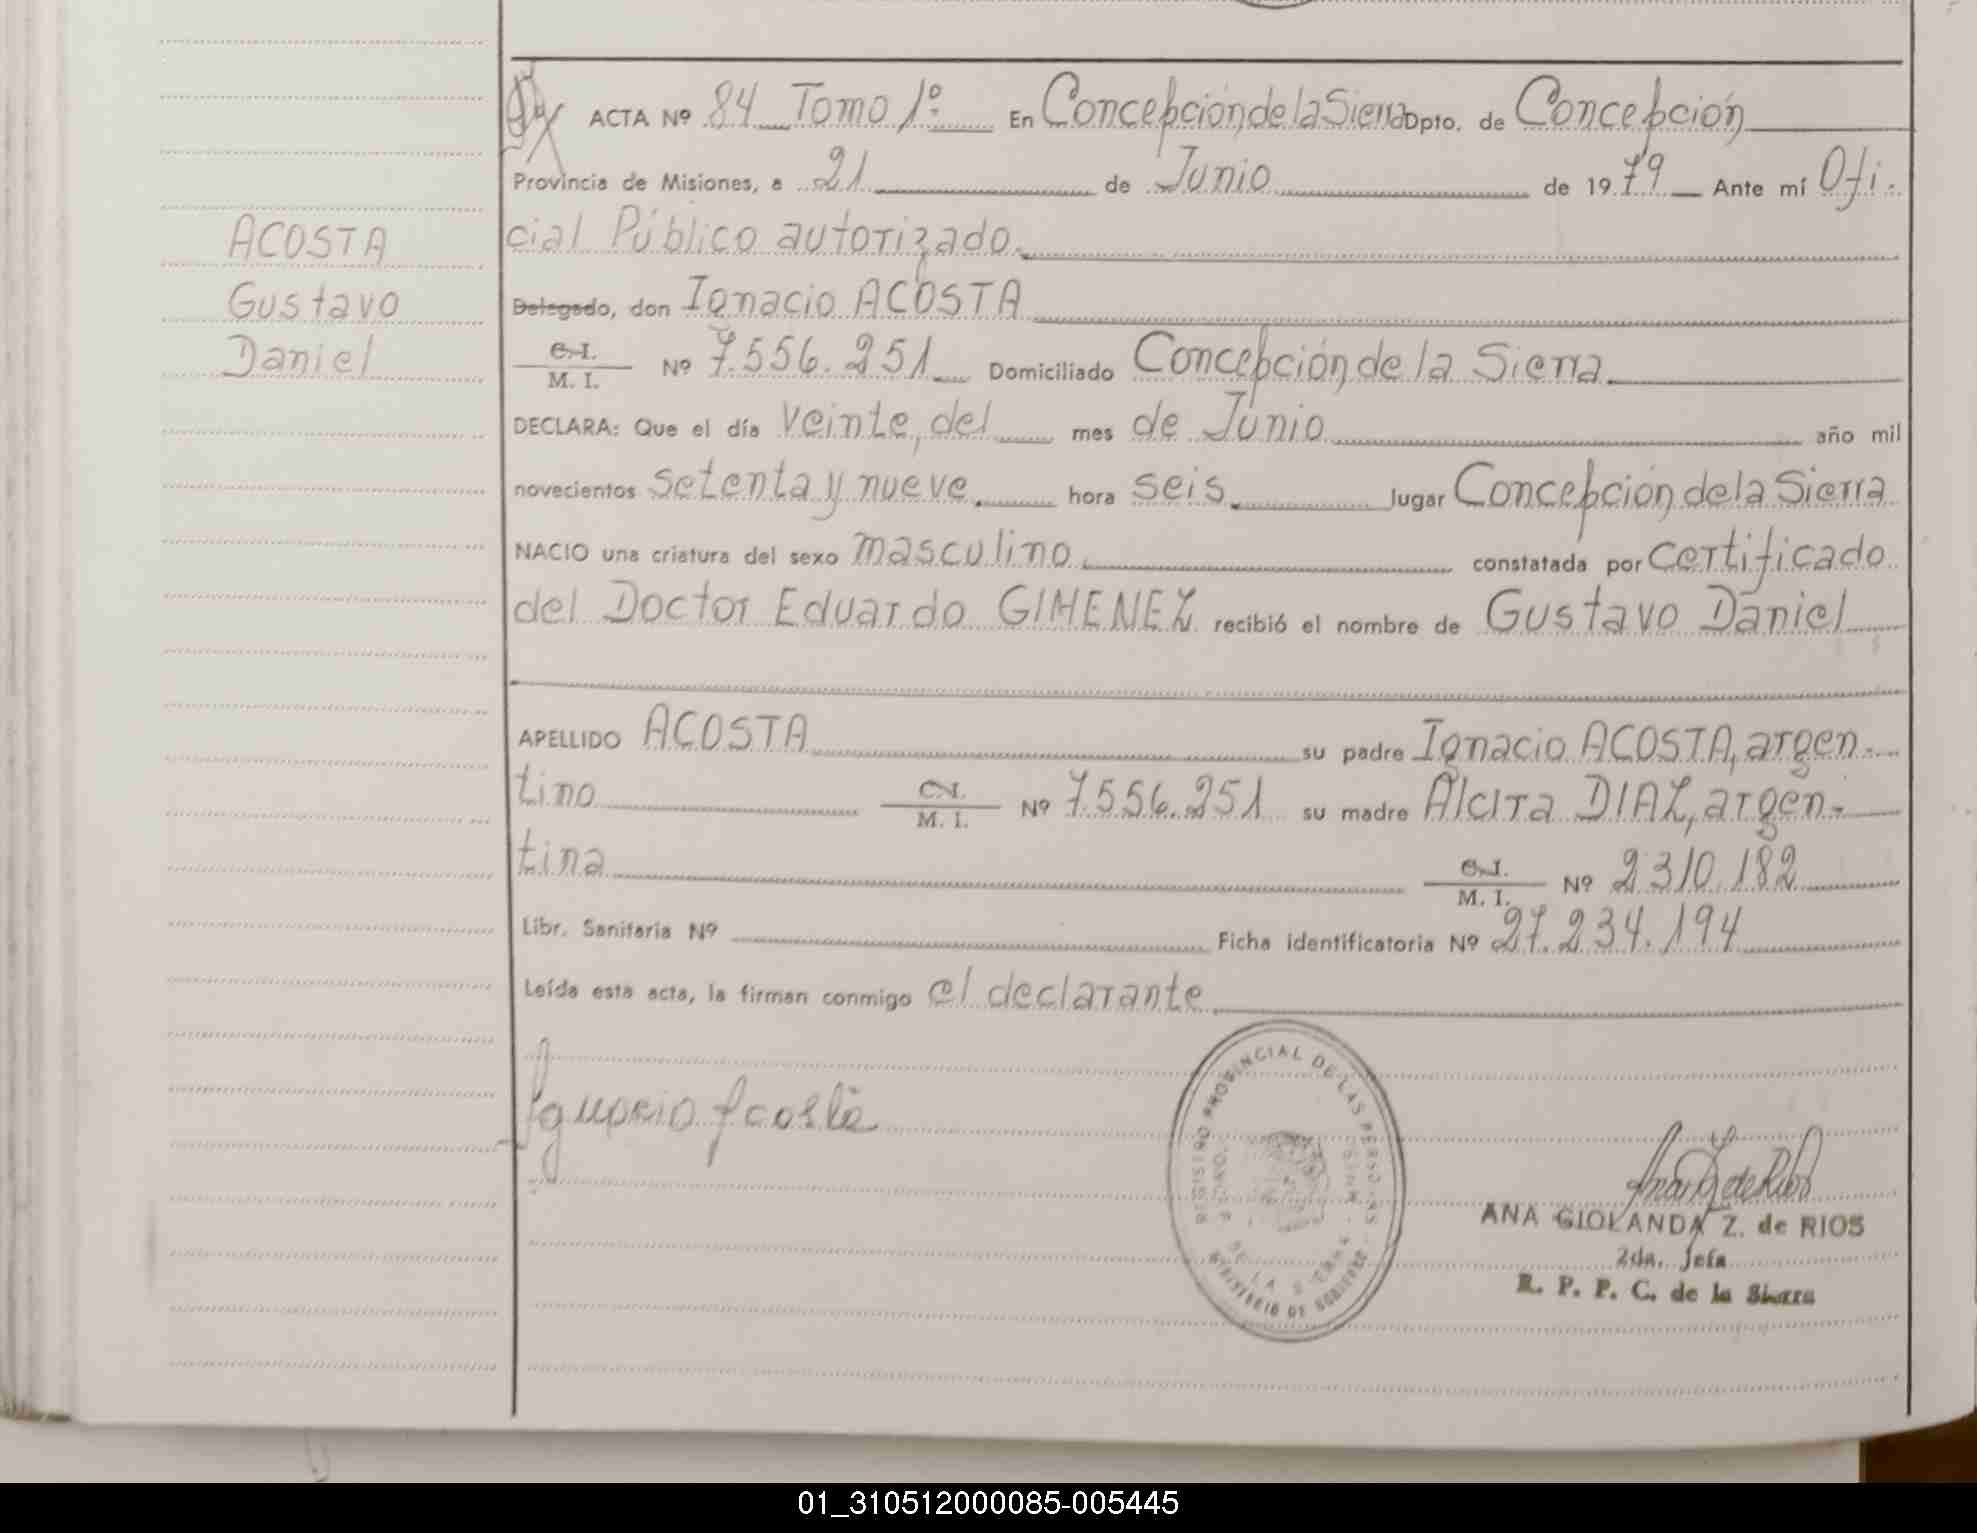 ACOSTA
Gustavo
Daniel
ACTA Nº 84 Tomo 1º En Concepción de la Sierra Dpto. de Concepción
Provincia de Misiones, a 21 de Junio de 1979 Ante mí Ofi-
cial Público autorizado
Delegado, don Ignacio ACOSTA
C.I.
M. I. Nº 7.556.251 Domiciliado Concepción de la Sierra
DECLARA: Que el día veinte, del mes de Junio año mil
novecientos setenta y nueve. hora seis. lugar Concepción de la Sierra
NACIO una criatura del sexo masculino constatada por certificado
del Doctor Eduardo GIMENEZ recibió el nombre de Gustavo Daniel
APELLIDO ACOSTA su padre Ignacio ACOSTA, argen-
tino C.I.
M. I. Nº 7.556.251 su madre Alcira DIAZ, argen-
tina C.I.
M. I. Nº 2.310.182
Libr. Sanitaria Nº Ficha identificatoria Nº 27.234.194
Leída esta acta, la firman conmigo el declarante
Ignacio Acosta
REGISTRO PROVINCIAL DE LAS PERSONAS
DE LA SIERRA
MINISTERIO DE GOBIERNO
Ana Z de Rios
ANA GIOLANDA Z. de RIOS
2da. Jefa
R. P. P. C. de la Sierra
01_310512000085-005445